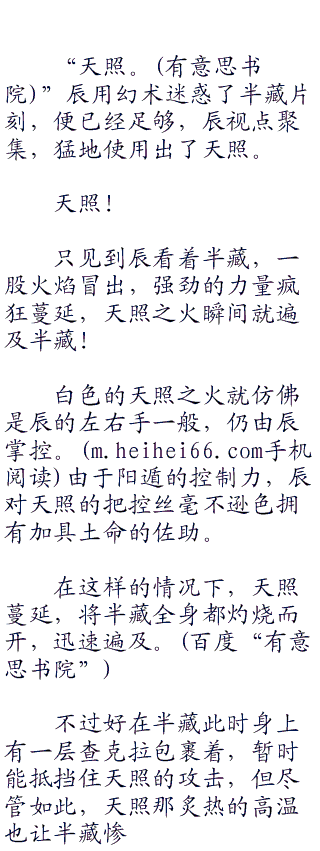 “天照。(有意思书
院)”辰用幻术迷惑了半藏片
刻，便已经足够，辰视点聚
集，猛地使用出了天照。
天照！
只见到辰看着半藏，一
股火焰冒出，强劲的力量疯
狂蔓延，天照之火瞬间就遍
及半藏！
白色的天照之火就仿佛
是辰的左右手一般，仍由辰
掌控。(m.heihei66.com手机
阅读)由于阳遁的控制力，辰
对天照的把控丝毫不逊色拥
有加具土命的佐助。
在这样的情况下，天照
蔓延，将半藏全身都灼烧而
开，迅速遍及。(百度“有意
思书院”)
不过好在半藏此时身上
有一层查克拉包裹着，暂时
能抵挡住天照的攻击，但尽
管如此，天照那炙热的高温
也让半藏惨